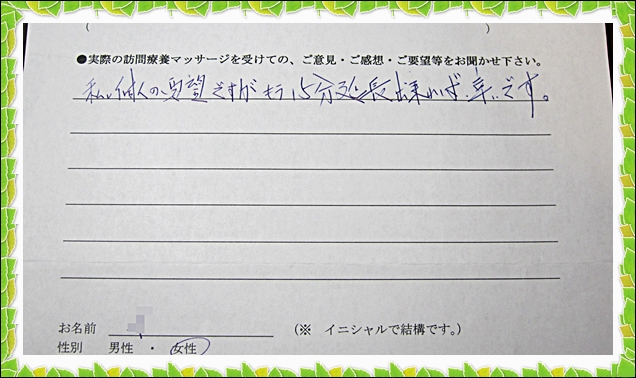 (　　　　　　　　　　　　　　　　)
●実際の訪問療養マッサージを受けての、ご意見・ご感想・ご要望等をお聞かせ下さい。
私個人の要望ですがもう15分延長出来れば幸いです。
お名前　　　　　　　　(※ イニシャルで結構です。)
性別 男性 ・ 女性